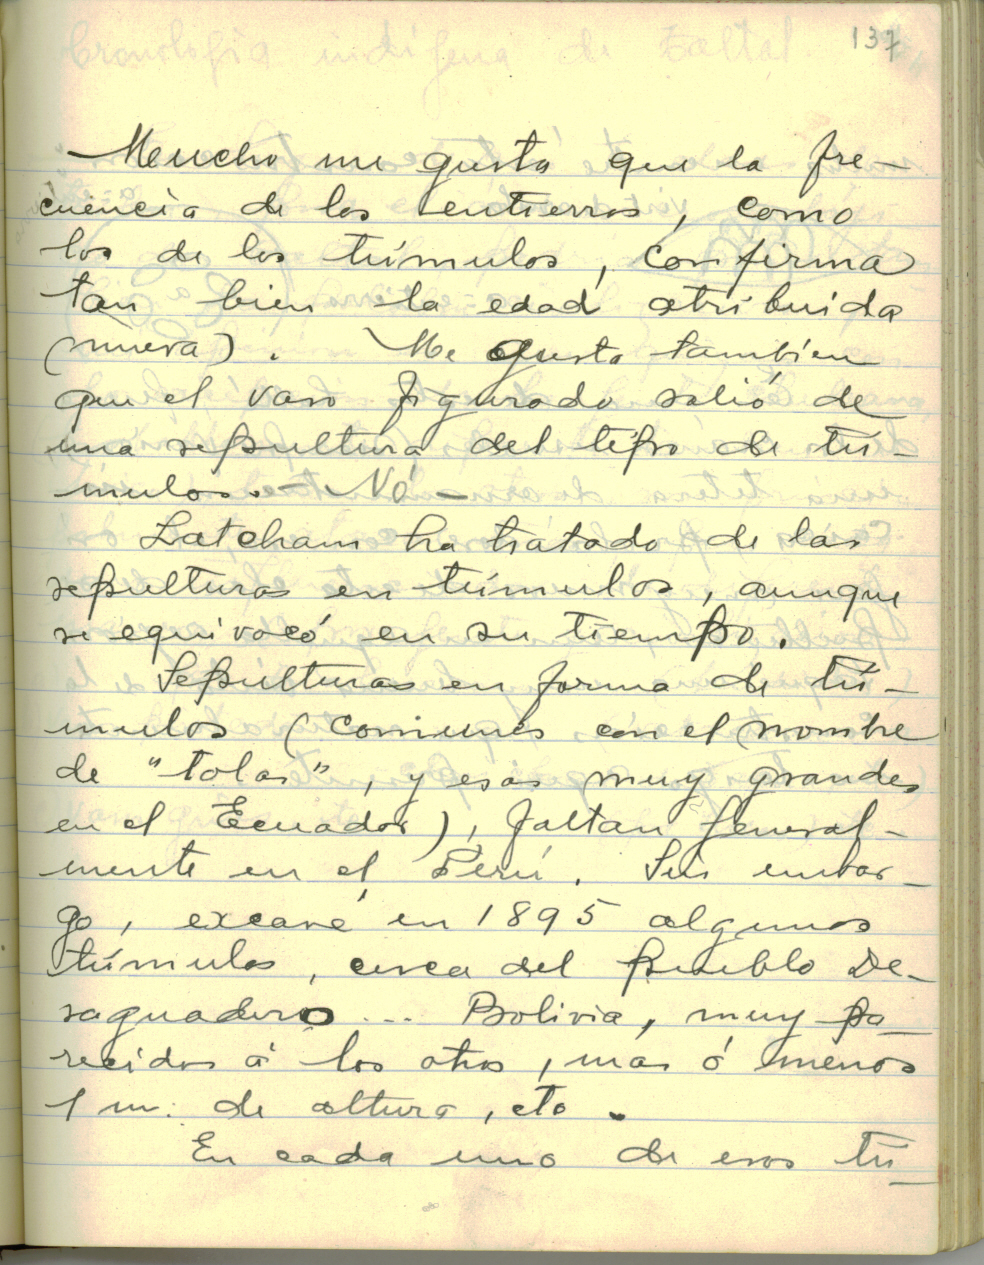 Cronología indígena de Taltal.
137
Meucho me gusta que la fre-
cuencia de los entierros, como
los de los túmulos, confirma
tan bien la edad atribuida
(nueva). Me gusta tambien
que el vaso figurado salió de
una sepultura del tipo de tú-
mulos. - Nó -
Latcham ha tratado de las
sepulturas en túmulos, aunque
se equivocó en su tiempo.
Sepulturas en forma de tú-
mulos (comunes con el nombre
de "tolas", y esas muy grandes
en el Ecuador), faltan general-
mente en el Perú. Sin embar-
go, excavé en 1895 algunos
túmulos, cerca del pueblo De-
saguadero ... Bolivia, muy pa-
recidos á los otros, mas ó menos
1 m. de altura, etc.
En cada uno de esos tú-